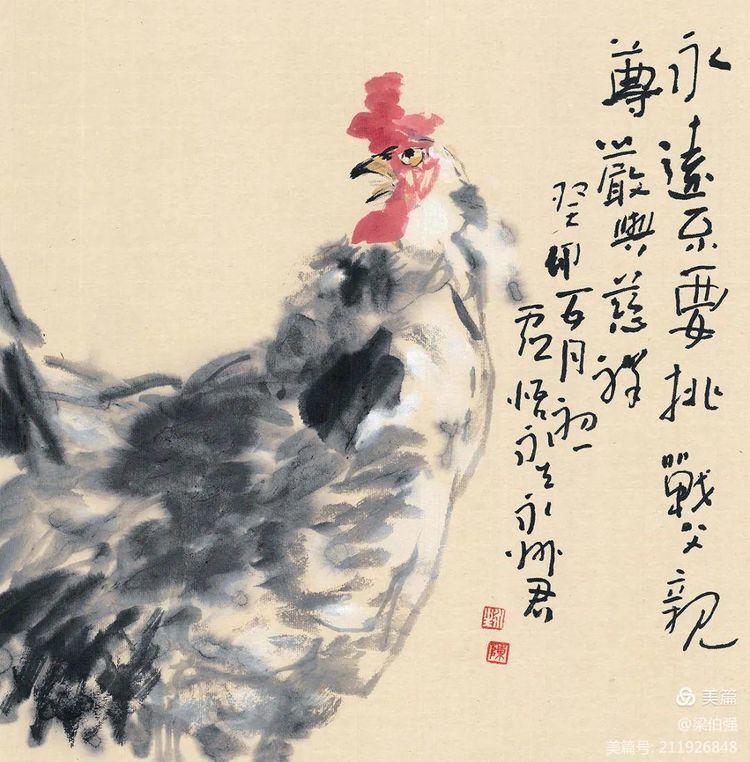 永遠不要挑戰父親
尊嚴與慈祥
癸卯月初
悟永生永州君
陳
美篇
@梁伯强
美篇号: 211926848